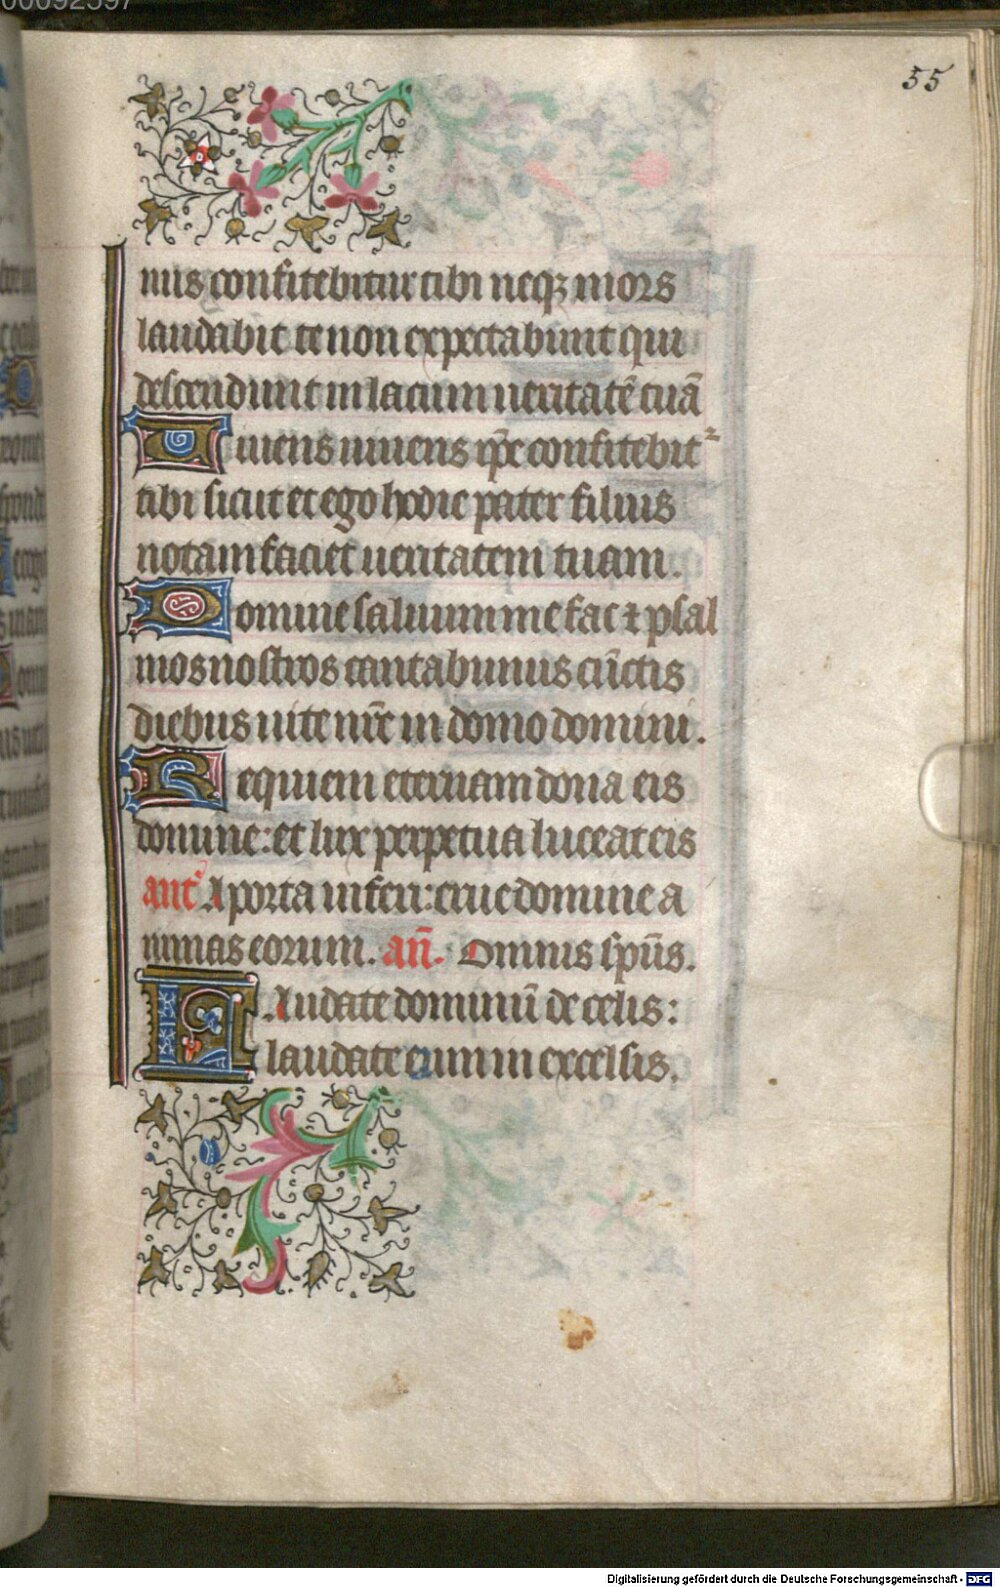 55
nus confitebitur tibi neqꝫ mors
laudabit te non expectabunt qui
descendunt in lacum ueritatē tuā
Uiuens uiuens ip̄e confitebit᷑
tibi sicut et ego hodie pater filiis
notam faciet ueritatem tuam.
Domine saluum me fac ⁊ psal
mos nostros cantabimus cūctis
diebus uite nr̄e in domo domini.
Requiem eternam dona eis
domine: et lux perpetua luceat eis
ant' A porta inferi: erue domine a
nimas eorum. añ. Omnis sp̄us.
LAudate dominū de celis:
laudate eum in excelsis.
Digitalisierung gefördert durch die Deutsche Forschungsgemeinschaft - DFG